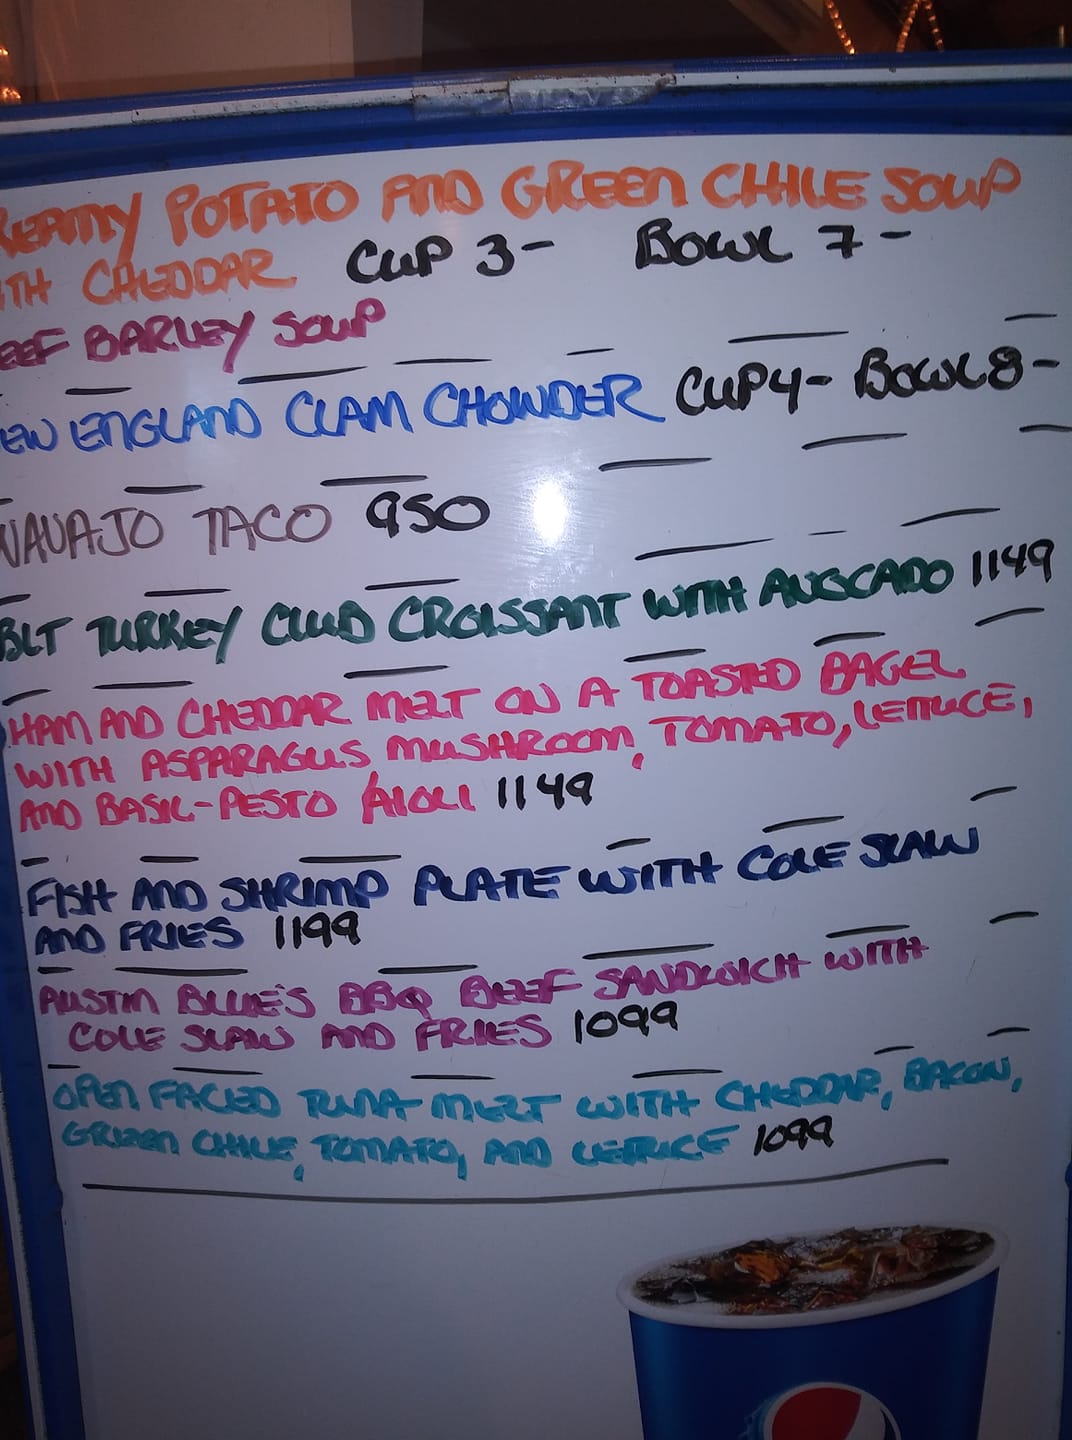 REAMY POTATO AND GREEN CHILE SOUP
ITH CHEDDAR CUP 3- BOWL 7-
EEF BARLEY SOUP
EW ENGLAND CLAM CHOWDER CUP 4- BOWL 8-
NAVAJO TACO 950
BLT TURKEY CLUB CROISSANT WITH AVOCADO 1149
HAM AND CHEDDAR MELT ON A TOASTED BAGEL
WITH ASPARAGUS MUSHROOM, TOMATO, LETTUCE,
AND BASIL-PESTO AIOLI 1149
FISH AND SHRIMP PLATE WITH COLE SLAW
AND FRIES 1199
AUSTIN BLUE'S BBQ BEEF SANDWICH WITH
COLE SLAW AND FRIES 1099
OPEN FACED TUNA MELT WITH CHEDDAR, BACON,
GREEN CHILE, TOMATO, AND LETTUCE 1099